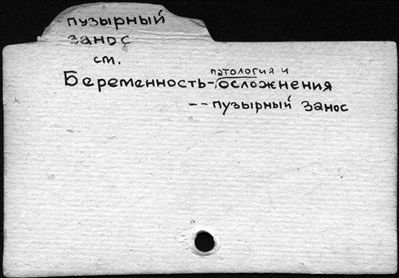 пузырный
занос
см.
патология и
Беременность-осложнения
--пузырный занос